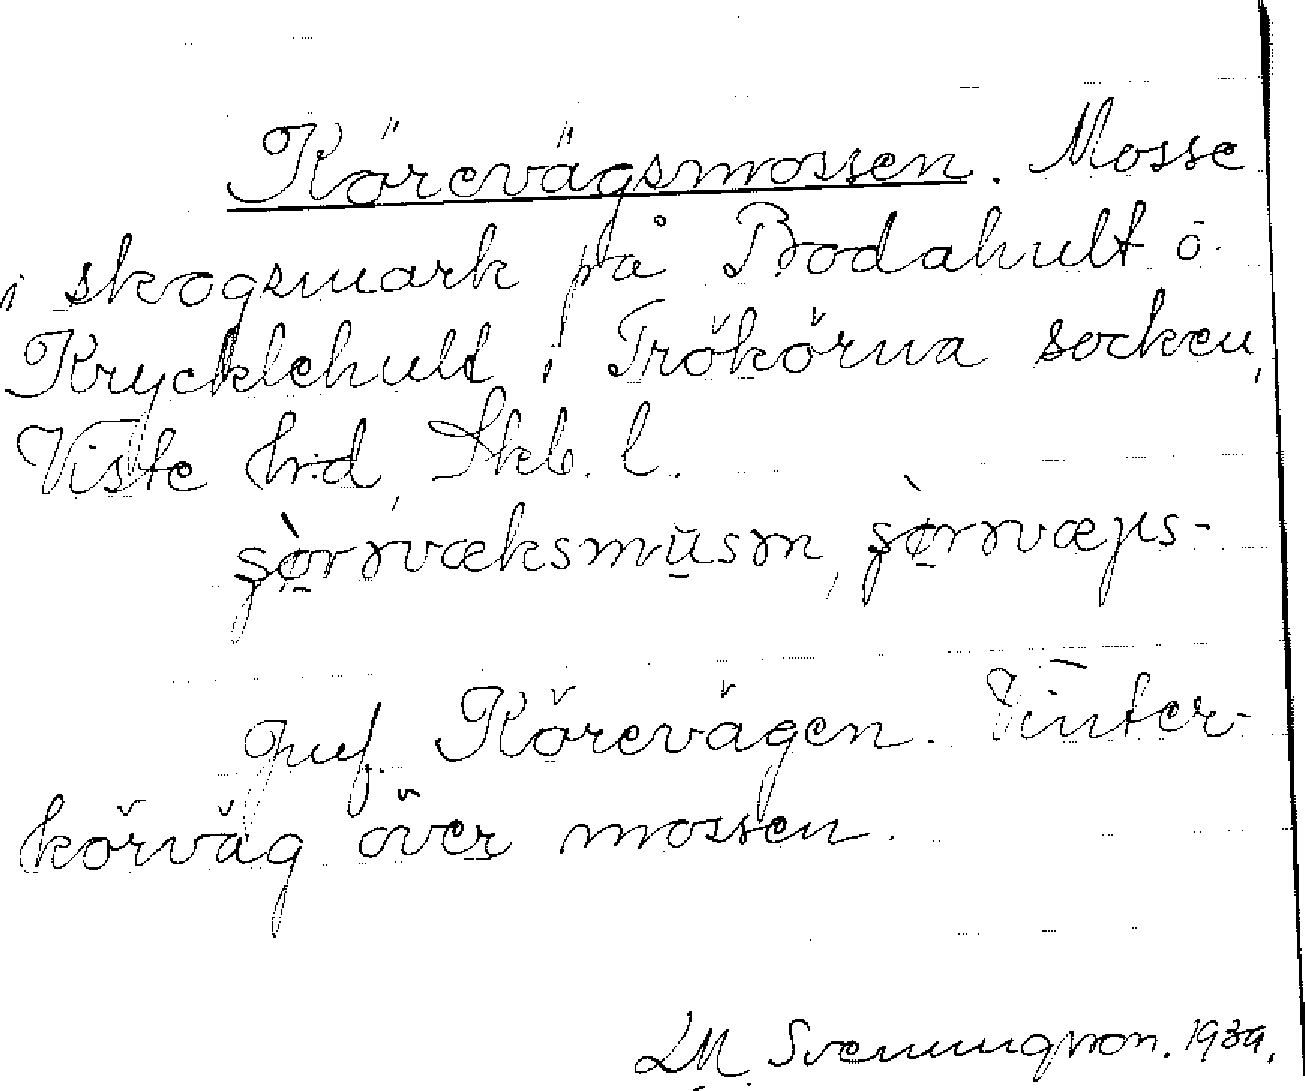 Körevägsmossen. Mosse
i skogsmark på Bodahult o.
Krycklehult i Trökörna socken,
Viste hrd, Skb. l.
jmf. Körevägen. Vinter-
körväg över mossen.
LM. Svenungsson. 1939.